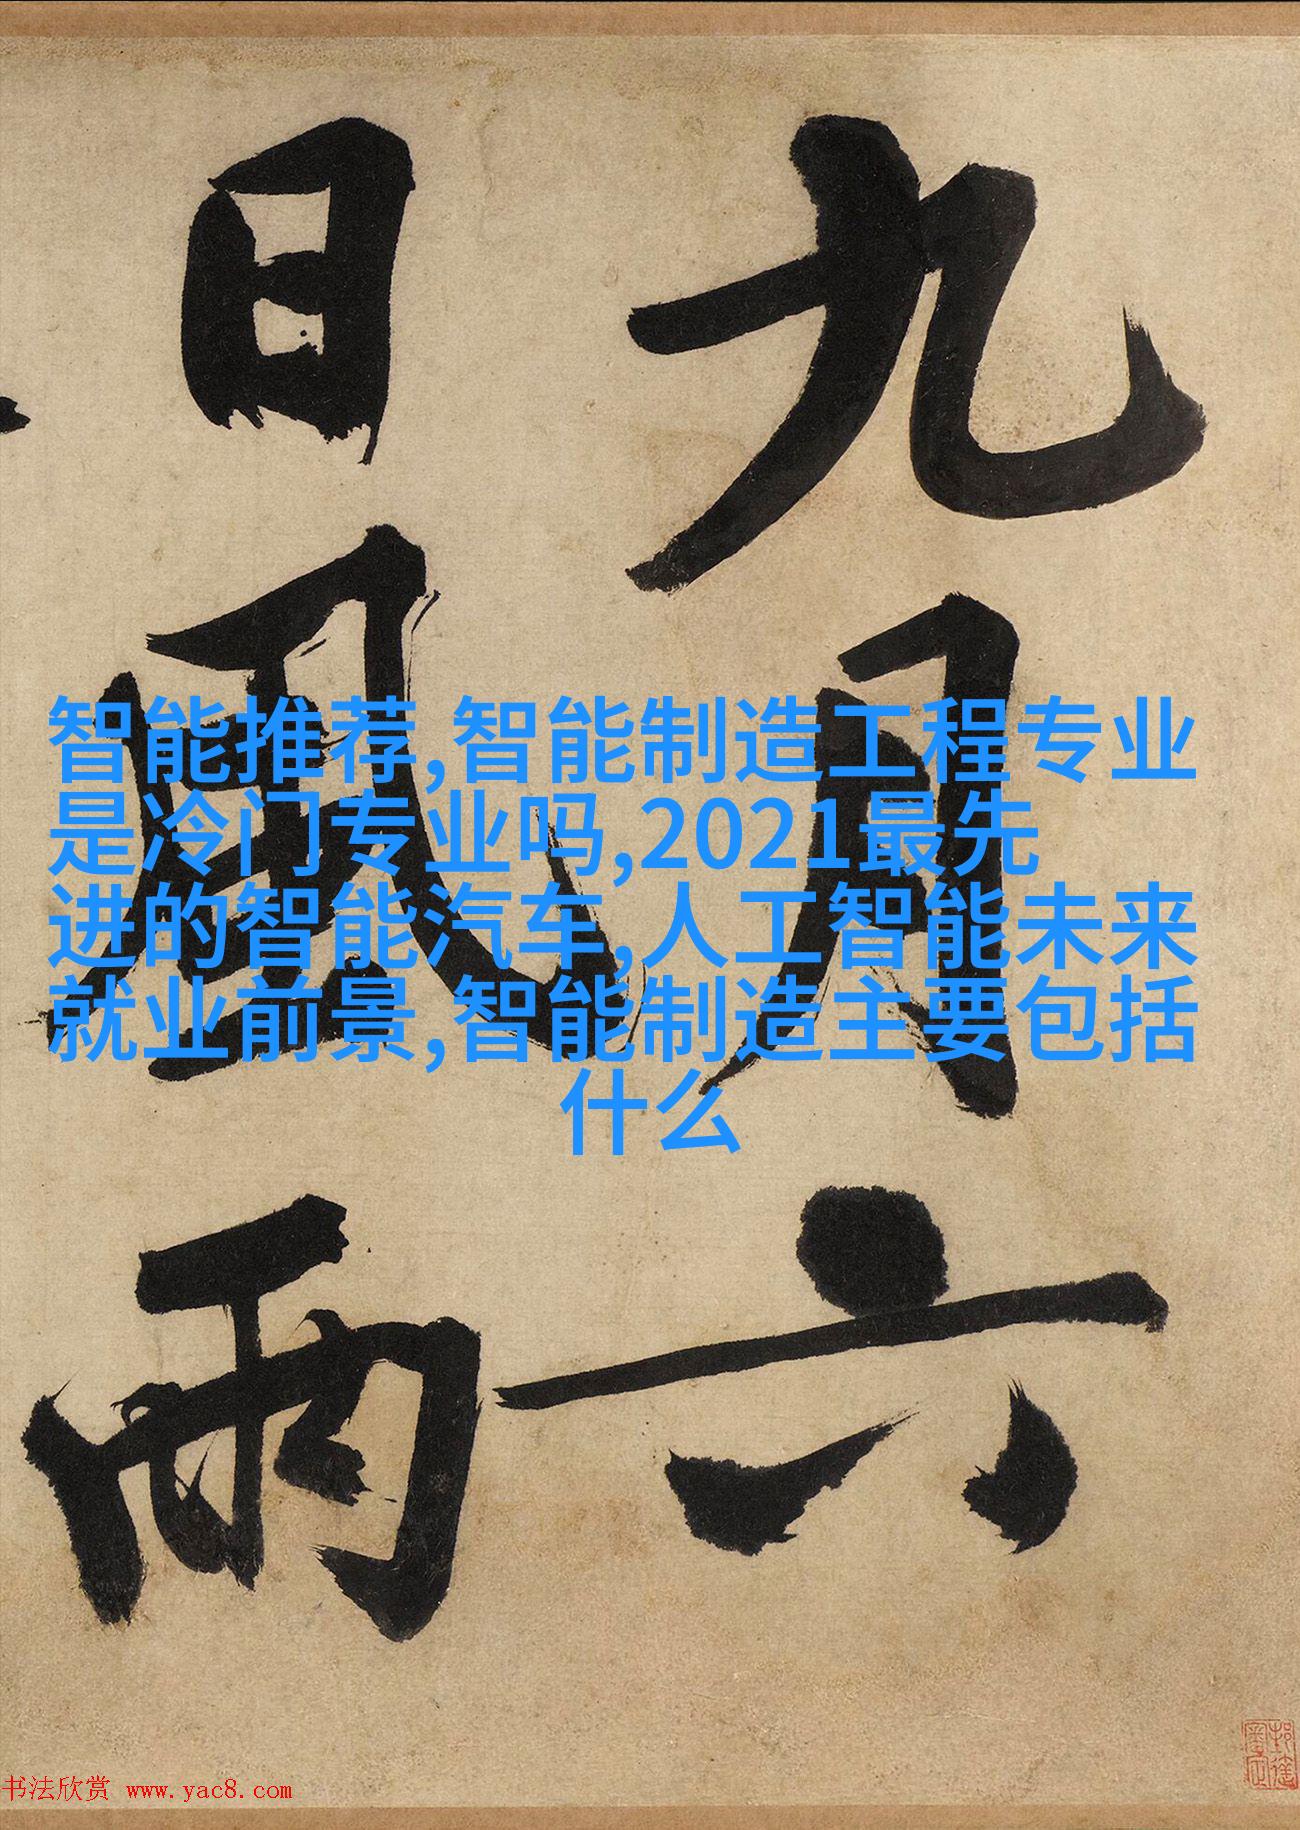 九月六
日風雨
智能推荐,智能制造工程专业
是冷门专业吗,2021最先
进的智能汽车,人工智能未来
就业前景,智能制造主要包括
什么
书法欣赏 www.yac8.com